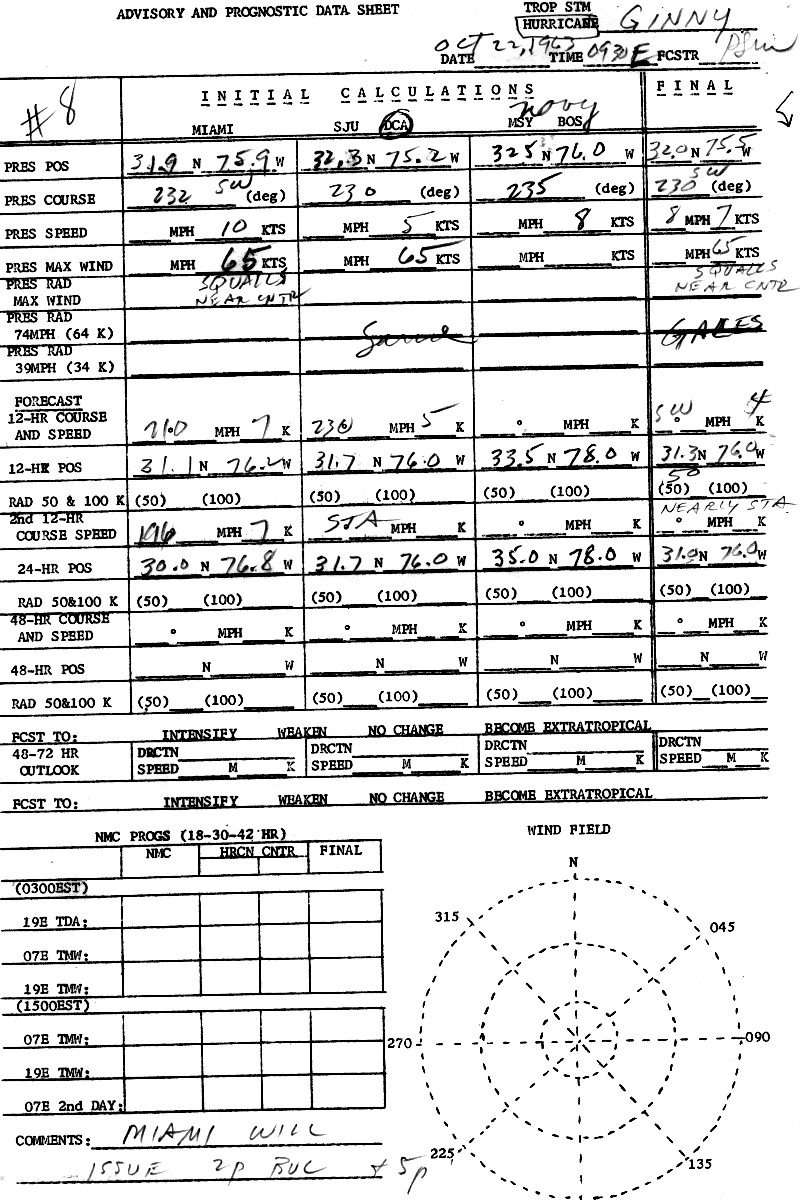 ADVISORY AND PROGNOSTIC DATA SHEET
TROP STM
HURRICANE GINNY
DATE OCT 22, 1963 TIME 0930E FCSTR
#8
INITIAL CALCULATIONS FINAL
navy
MIAMI SJU DCA MSY BOS
PRES POS 31.9 N 75.9 W 32.3 N 75.2 W 32.5 N 76.0 W 32.0 N 75.5 W
PRES COURSE 232 SW (deg) 230 (deg) 235 (deg) 230 SW (deg)
PRES SPEED MPH 10 KTS MPH 5 KTS MPH 8 KTS 8 MPH 7 KTS
PRES MAX WIND MPH 65 KTS MPH 65 KTS MPH KTS MPH 65 KTS
PRES RAD SQUALLS SQUALLS
MAX WIND NEAR CNTR NEAR CNTR
PRES RAD
74MPH (64 K) Same GALES
PRES RAD
39MPH (34 K)
FORECAST
12-HR COURSE SW 4
AND SPEED 210 MPH 7 K 230 MPH 5 K ° MPH K ° MPH K
12-HR POS 31.1 N 76.2 W 31.7 N 76.0 W 33.5 N 78.0 W 31.3 N 76.0 W
50
RAD 50 & 100 K (50) (100) (50) (100) (50) (100) (50) (100)
2nd 12-HR NEARLY STA
COURSE SPEED 196 MPH 7 K STA MPH K ° MPH K ° MPH K
24-HR POS 30.0 N 76.8 W 31.7 N 76.0 W 35.0 N 78.0 W 31.0 N 76.0 W
RAD 50&100 K (50) (100) (50) (100) (50) (100) (50) (100)
48-HR COURSE
AND SPEED ° MPH K ° MPH K ° MPH K ° MPH K
48-HR POS N W N W N W N W
RAD 50&100 K (50) (100) (50) (100) (50) (100) (50) (100)
FCST TO: INTENSIFY WEAKEN NO CHANGE BECOME EXTRATROPICAL
48-72 HR DRCTN DRCTN DRCTN DRCTN
OUTLOOK SPEED M K SPEED M K SPEED M K SPEED M K
FCST TO: INTENSIFY WEAKEN NO CHANGE BECOME EXTRATROPICAL
NMC PROGS (18-30-42 HR)
NMC HRCN CNTR FINAL
(0300EST)
19E TDA:
07E TMW:
19E TMW:
(1500EST)
07E TMW:
19E TMW:
07E 2nd DAY:
COMMENTS: MIAMI WILL
ISSUE 2p BUL + 5p
WIND FIELD
N
315 045
270 090
225 135